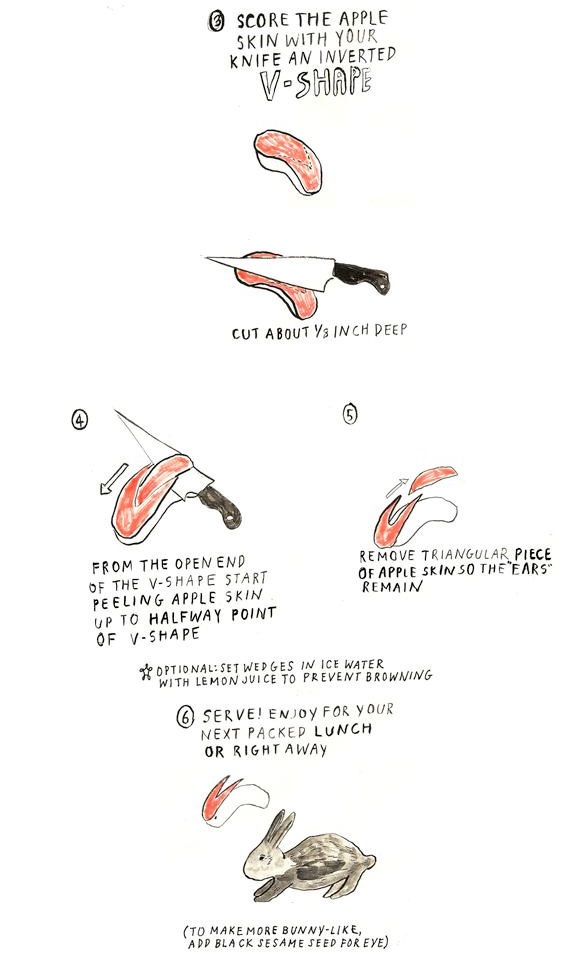 ③ SCORE THE APPLE
SKIN WITH YOUR
KNIFE AN INVERTED
V-SHAPE
CUT ABOUT 1/8 INCH DEEP
④
FROM THE OPEN END
OF THE V-SHAPE START
PEELING APPLE SKIN
UP TO HALFWAY POINT
OF V-SHAPE
⑤
REMOVE TRIANGULAR PIECE
OF APPLE SKIN SO THE "EARS"
REMAIN
☆ OPTIONAL: SET WEDGES IN ICE WATER
WITH LEMON JUICE TO PREVENT BROWNING
⑥ SERVE! ENJOY FOR YOUR
NEXT PACKED LUNCH
OR RIGHT AWAY
(TO MAKE MORE BUNNY-LIKE,
ADD BLACK SESAME SEED FOR EYE)